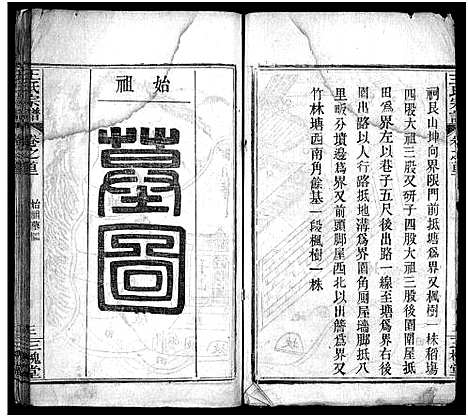 祠艮山坤向界限門前抵塘爲界又楓樹一株稻塲
四股大祖三股又研子四股大祖三股後園圍屋抵
田爲界左以巷子五尺後出路一線至塘爲界右
園出路以人行路抵地溝爲界園角厠屋墻脚抵八
里畈分墳邊爲界又前頭脚屋西北以出簷爲界又
竹林塘西南角餘基一段楓樹一株
始祖
墓圖
王氏宗譜
卷之首
始祖墓圖
三槐堂